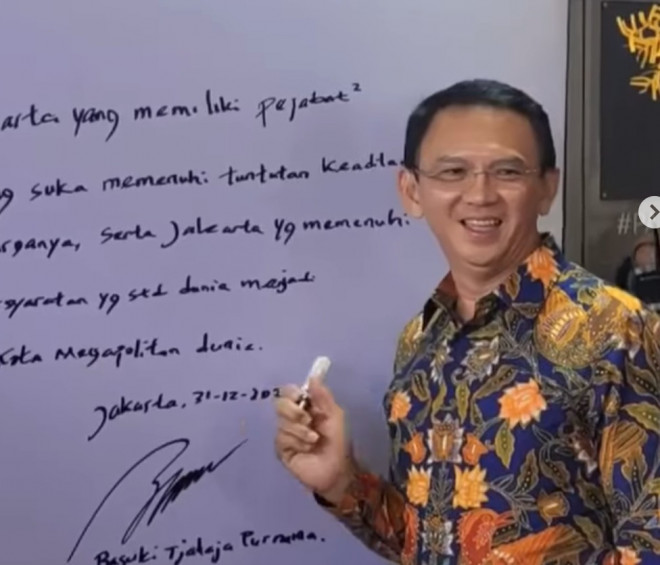 arta yang memiliki pejabat²
g suka memenuhi tuntutan keadla
rganya, serta Jakarta yg memenuhi
syaratan yg std dunia
Kota Megapolitan dunia.
Jakarta, 31-12-202
Basuki Tjahaja Purnama.